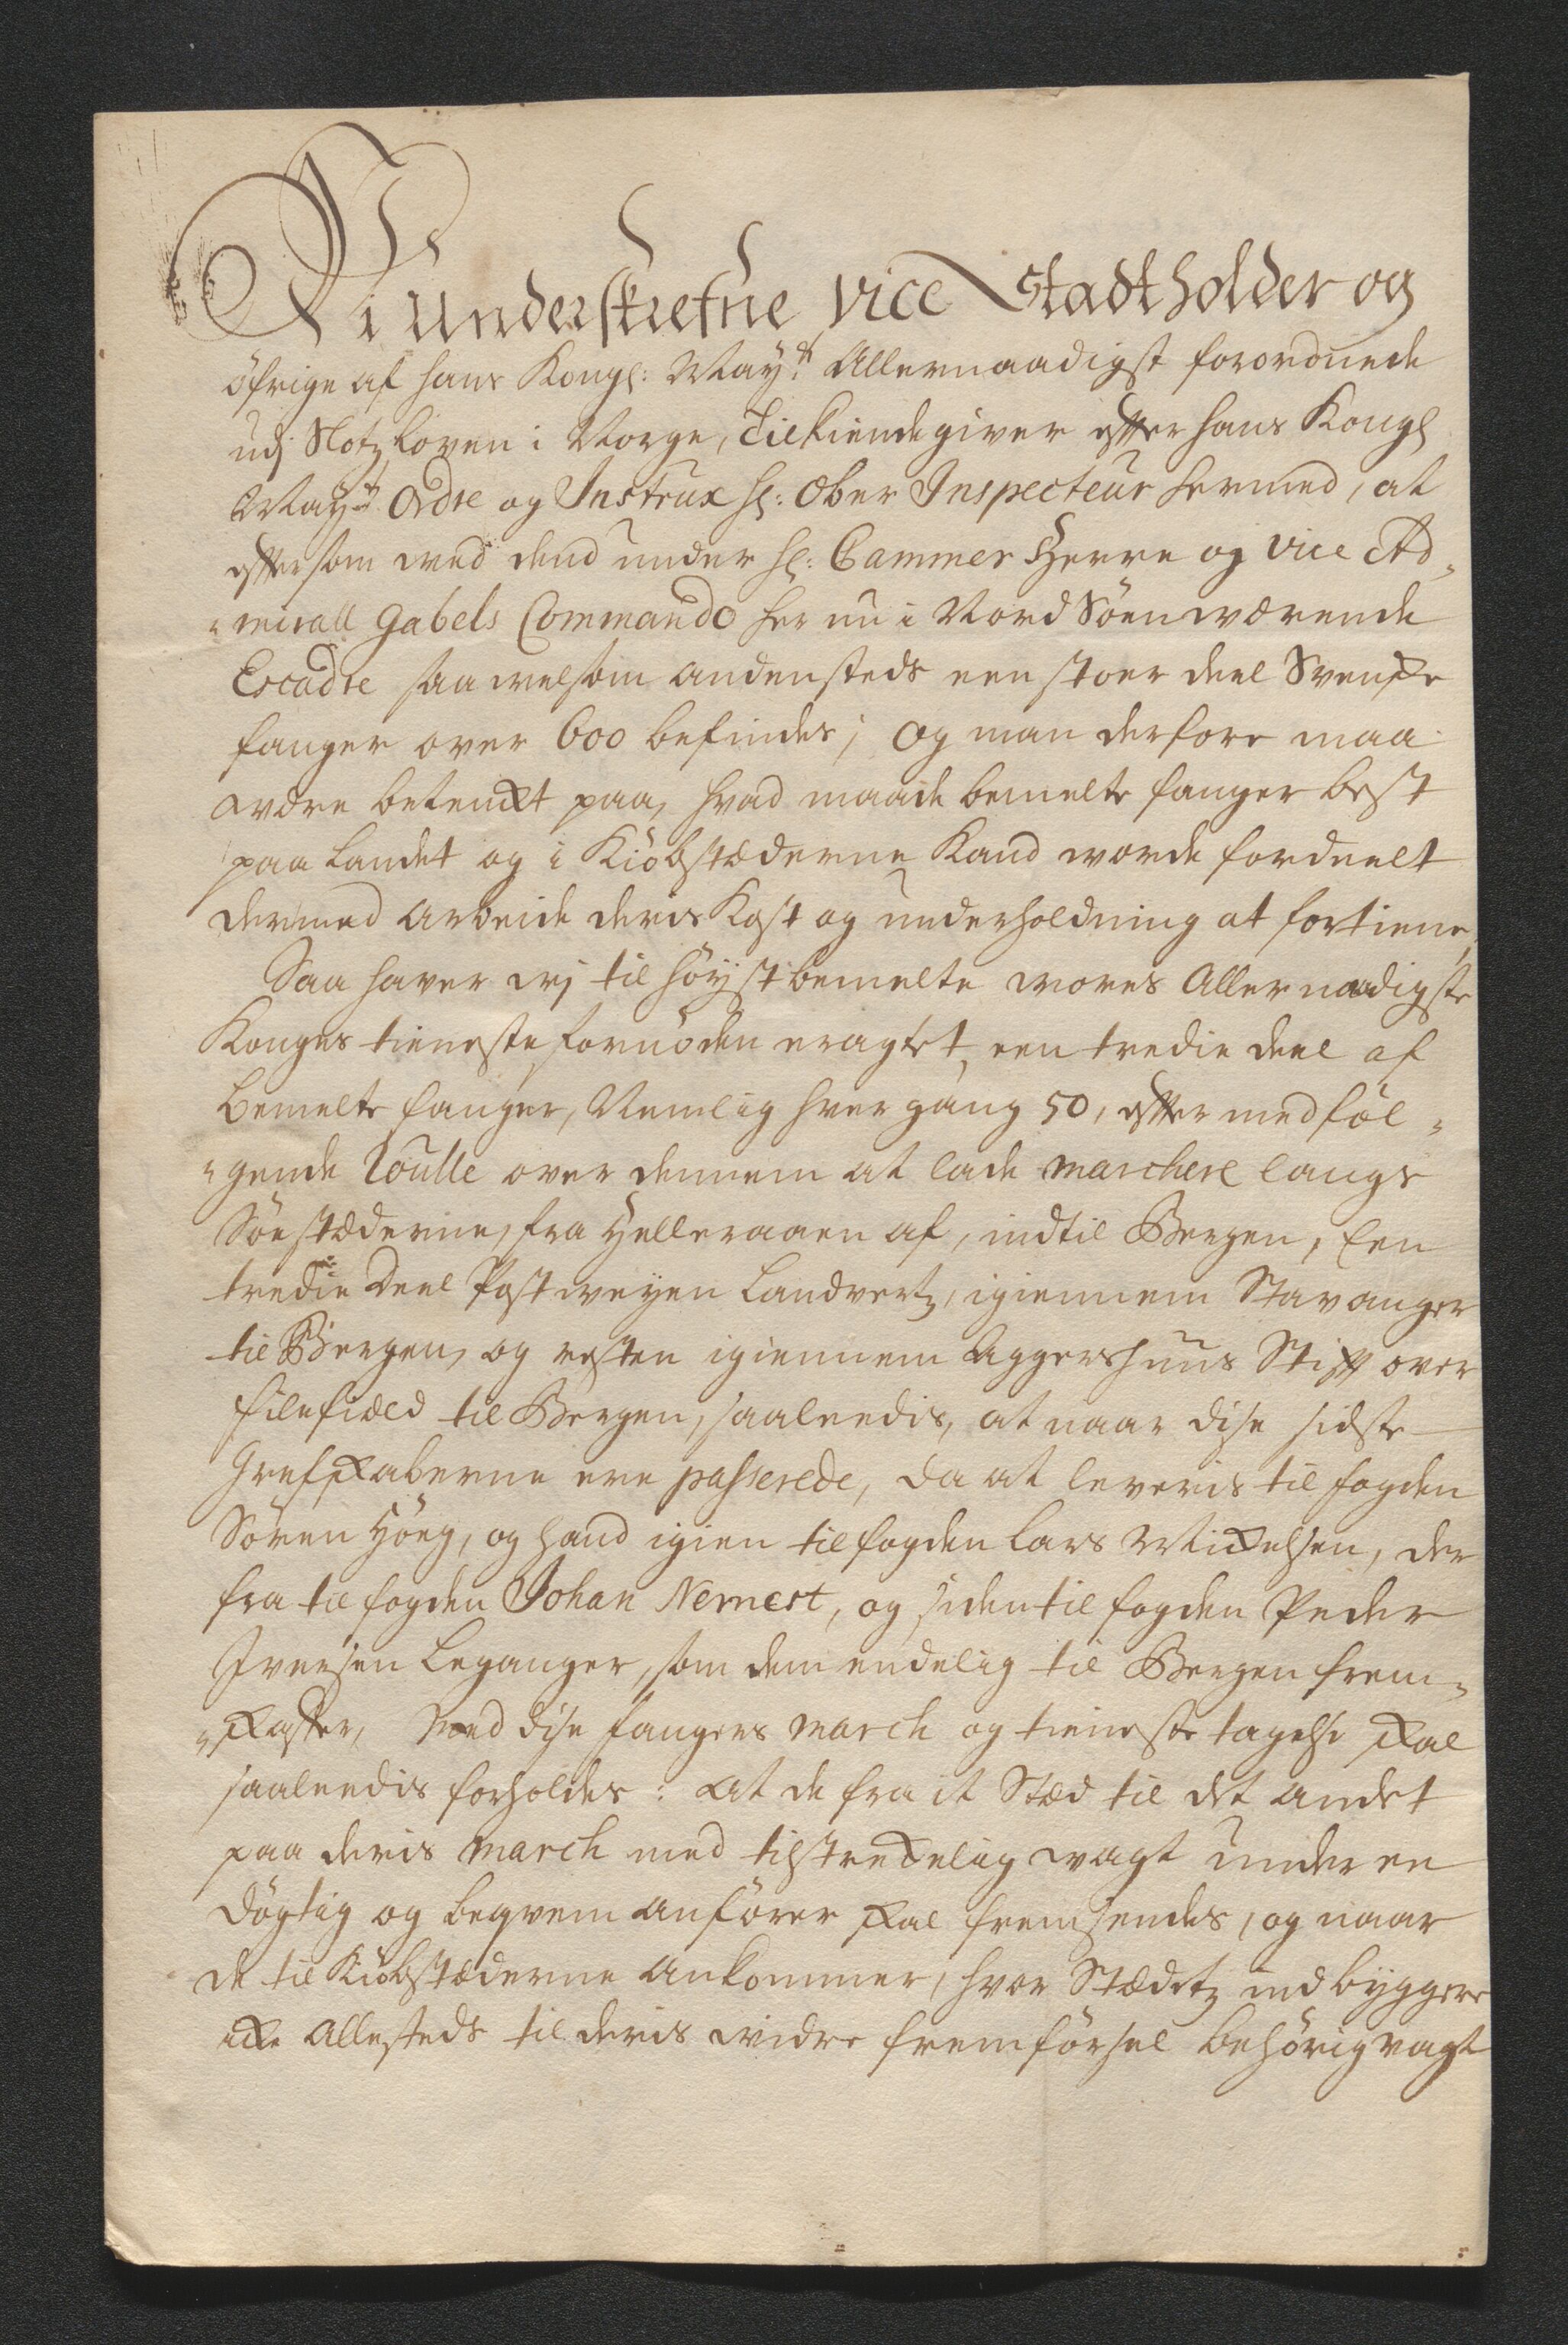 Vi Underskrefne Vice Stadtholder og
öfrige af hans Kongl: May:tt Allernaadigst forordnede
udj Slotz Loven i Norge, Tilkiendegiver efter hans Kongl
May:tt Ordre og Instrux hl: Ober Inspecteur hermed, at
eftersom ved dend under hl: Cammer Herre og Vice Ad¬
mirall Gabels Commando her nu i Nord Söen værende
Escadre saavelsom andensteds een stoer deel Svenske
fanger over 600 befindes; og man derfore maa
være betenkt paa, hvad maade bemelte fanger best
paa Landet og i Kiöbstæderne Kand worde fordeelt
dermed arbeide deris Kost og underholdning at fortiene,
Saa haver wj til höystbemelte wores Allernaadigste
Konges tieneste fornöden eragtet, een tredie deel af
bemelte fanger, Nemlig hver gang 50, efter medföl¬
gende Roulle over dennem at lade marchere langs
Söestæderne, fra Helleraaen af, indtil Bergen, Een
tredie Deel Postveyen Landvertz, igiennem Stavanger
til Bergen, og resten igiennem Aggershuus Stift over
Filefield til Bergen, saaleedis, at naar dise sidste
Grefskaberne ere passerede, da at leveris til fogden
Sören Höeg, og hand igien til fogden Lars Mickelsen, der
fra til fogden Johan Nernest, og siden til fogden Peder
Iversen Leganger, som dem endelig til Bergen frem¬
skaffer, Med dise fangers march og tieneste tagelse skal
saaleedis forholdes: At de fra it Stæd til det andet
paa deris march med tilstrekelig vagt under en
dögtig og beqvem anförer skal fremsendes, og naar
de til Kiöbstæderne ankommer, hvor Stædetz indbyggere
icke allesteds til deris widre fremförsel behörig vagt